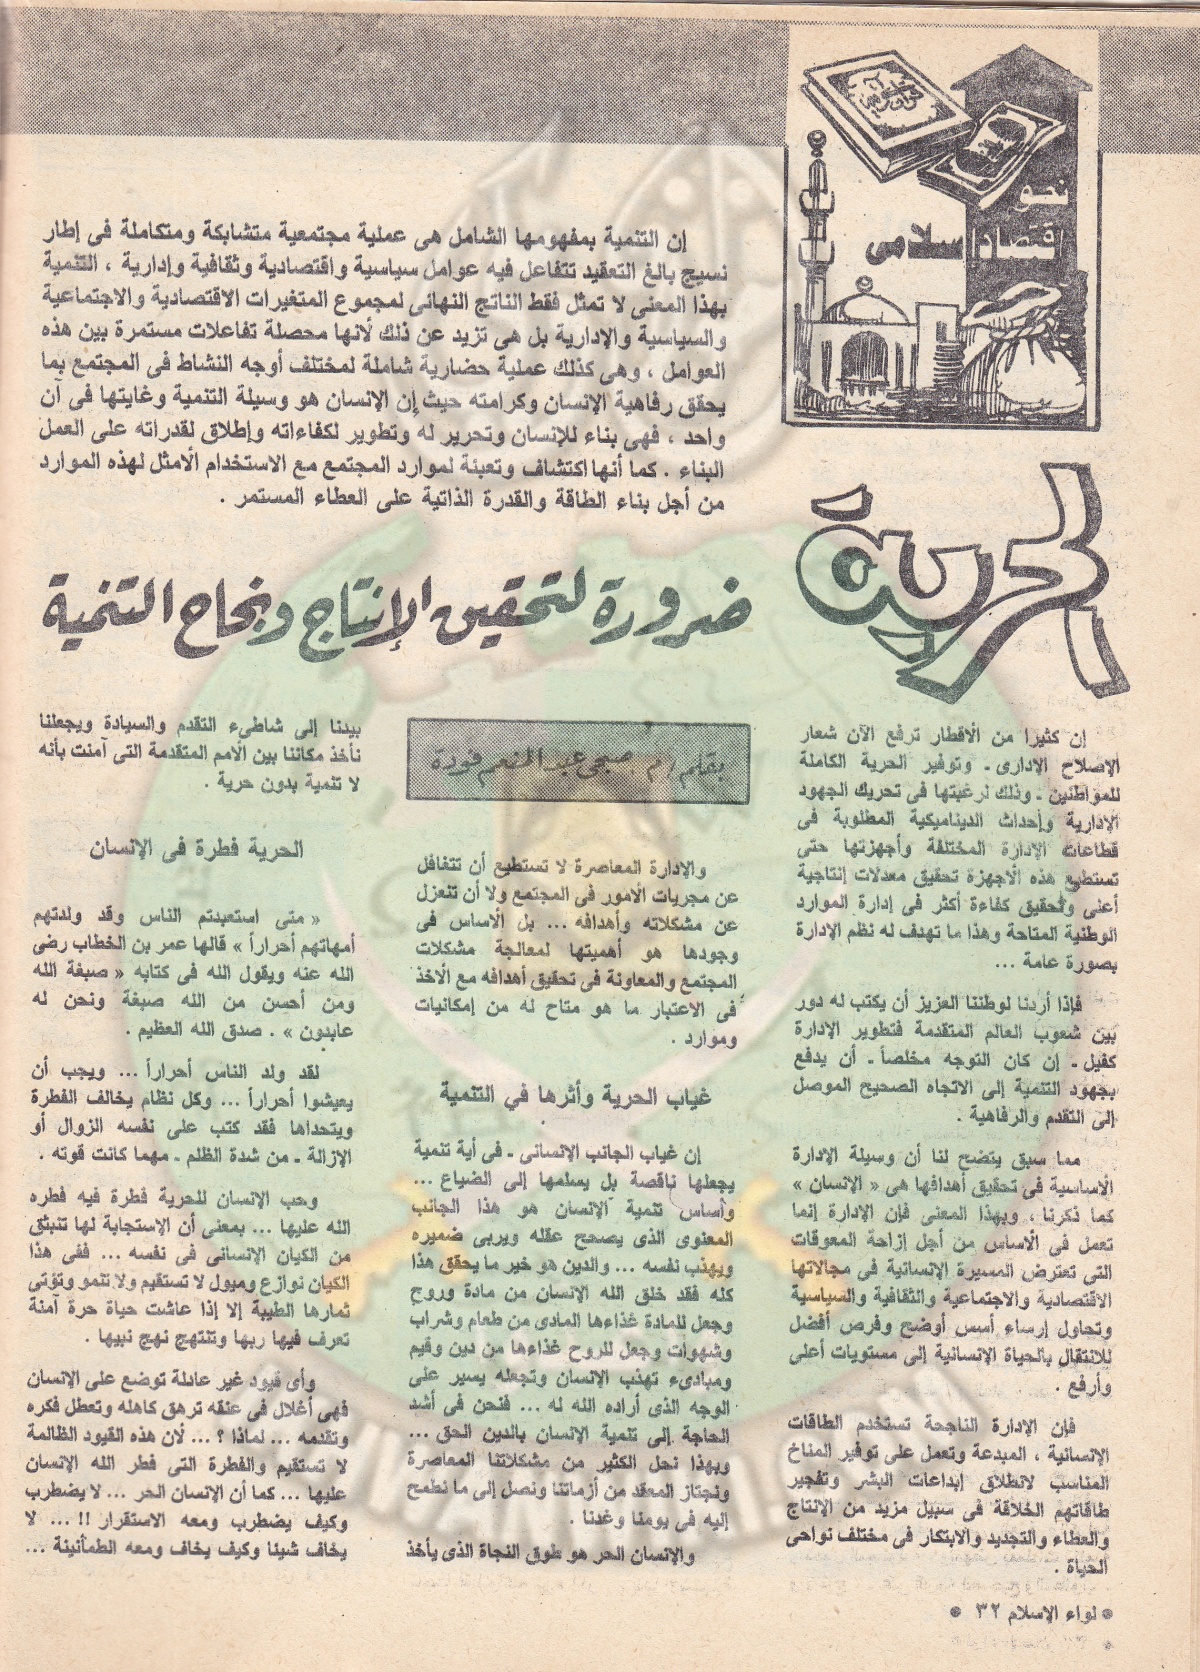 نحو
اقتصاد إسلامى
إن التنمية بمفهومها الشامل هى عملية مجتمعية متشابكة ومتكاملة فى إطار
نسيج بالغ التعقيد تتفاعل فيه عوامل سياسية واقتصادية وثقافية وإدارية ، التنمية
بهذا المعنى لا تمثل فقط الناتج النهائى لمجموع المتغيرات الاقتصادية والاجتماعية
والسياسية والإدارية بل هى تزيد عن ذلك لأنها محصلة تفاعلات مستمرة بين هذه
العوامل ، وهى كذلك عملية حضارية شاملة لمختلف أوجه النشاط فى المجتمع بما
يحقق رفاهية الإنسان وكرامته حيث إن الإنسان هو وسيلة التنمية وغايتها فى آن
واحد ، فهى بناء للإنسان وتحرير له وتطوير لكفاءاته وإطلاق لقدراته على العمل
البناء . كما أنها اكتشاف وتعبئة لموارد المجتمع مع الاستخدام الأمثل لهذه الموارد
من أجل بناء الطاقة والقدرة الذاتية على العطاء المستمر .
الحرية
ضرورة لتحقيق الإنتاج ونجاح التنمية
إن كثيرا من الأقطار ترفع الآن شعار
الإصلاح الإدارى ـ وتوفير الحرية الكاملة
للمواطنين ـ وذلك لرغبتها فى تحريك الجهود
الإدارية وإحداث الديناميكية المطلوبة فى
قطاعات الإدارة المختلفة وأجهزتها حتى
تستطيع هذه الأجهزة تحقيق معدلات إنتاجية
أعلى وتحقيق كفاءة أكثر فى إدارة الموارد
الوطنية المتاحة وهذا ما تهدف له نظم الإدارة
بصورة عامة ...
فإذا أردنا لوطننا العزيز أن يكتب له دور
بين شعوب العالم المتقدمة فتطوير الإدارة
كفيل ـ إن كان التوجه مخلصاً ـ أن يدفع
بجهود التنمية إلى الاتجاه الصحيح الموصل
إلى التقدم والرفاهية .
مما سبق يتضح لنا أن وسيلة الإدارة
الاساسية فى تحقيق أهدافها هى « الإنسان »
كما ذكرنا ، وبهذا المعنى فإن الإدارة إنما
تعمل فى الأساس من أجل إزاحة المعوقات
التى تعترض المسيرة الإنسانية فى مجالاتها
الاقتصادية والاجتماعية والثقافية والسياسية
وتحاول إرساء أسس أوضح وفرص أفضل
للانتقال بالحياة الإنسانية إلى مستويات أعلى
وأرفع .
فإن الإدارة الناجحة تستخدم الطاقات
الإنسانية ، المبدعة وتعمل على توفير المناخ
المناسب لانطلاق إبداعات البشر وتفجير
طاقاتهم الخلاقة فى سبيل مزيد من الإنتاج
والعطاء والتجديد والابتكار فى مختلف نواحى
الحياة .
بقلم / م . صبحى عبد المنعم فودة
والإدارة المعاصرة لا تستطيع أن تتغافل
عن مجريات الأمور فى المجتمع ولا أن تنعزل
عن مشكلاته وأهدافه ... بل الأساس فى
وجودها هو أهميتها لمعالجة مشكلات
المجتمع والمعاونة فى تحقيق أهدافه مع الأخذ
فى الاعتبار ما هو متاح له من إمكانيات
وموارد .
غياب الحرية وأثرها في التنمية
إن غياب الجانب الإنسانى ـ فى أية تنمية
يجعلها ناقصة بل يسلمها إلى الضياع ...
وأساس تنمية الإنسان هو هذا الجانب
المعنوى الذى يصحح عقله ويربى ضميره
ويهذب نفسه ... والدين هو خير ما يحقق هذا
كله فقد خلق الله الإنسان من مادة وروح
وجعل للمادة غذاءها المادى من طعام وشراب
وشهوات وجعل للروح غذاءها من دين وقيم
ومبادىء تهذب الإنسان وتجعله يسير على
الوجه الذى أراده الله له ... فنحن فى أشد
الحاجة إلى تنمية الإنسان بالدين الحق ...
وبهذا نحل الكثير من مشكلاتنا المعاصرة
ونجتاز المعقد من أزماتنا ونصل إلى ما نطمح
إليه فى يومنا وغدنا .
والإنسان الحر هو طوق النجاة الذى يأخذ
بيدنا إلى شاطىء التقدم والسيادة ويجعلنا
نأخذ مكاننا بين الأمم المتقدمة التى آمنت بأنه
لا تنمية بدون حرية .
الحرية فطرة فى الإنسان
« متى استعبدتم الناس وقد ولدتهم
أمهاتهم أحراراً » قالها عمر بن الخطاب رضى
الله عنه ويقول الله فى كتابه « صبغة الله
ومن أحسن من الله صبغة ونحن له
عابدون » . صدق الله العظيم .
لقد ولد الناس أحراراً ... ويجب أن
يعيشوا أحراراً ... وكل نظام يخالف الفطرة
ويتحداها فقد كتب على نفسه الزوال أو
الإزالة ـ من شدة الظلم ـ مهما كانت قوته .
وحب الإنسان للحرية فطرة فيه فطره
الله عليها ... بمعنى أن الإستجابة لها تنبثق
من الكيان الإنسانى فى نفسه ... ففى هذا
الكيان نوازع وميول لا تستقيم ولا تنمو وتؤتى
ثمارها الطيبة إلا إذا عاشت حياة حرة آمنة
تعرف فيها ربها وتنتهج نهج نبيها .
وأى قيود غير عادلة توضع على الإنسان
فهى أغلال فى عنقه ترهق كاهله وتعطل فكره
وتقدمه ... لماذا ؟ ... لأن هذه القيود الظالمة
لا تستقيم والفطرة التى فطر الله الإنسان
عليها ... كما أن الإنسان الحر ... لا يضطرب
وكيف يضطرب ومعه الاستقرار !! ... لا
يخاف شيئا وكيف يخاف ومعه الطمأنينة ...
* لواء الإسلام ٣٢ *